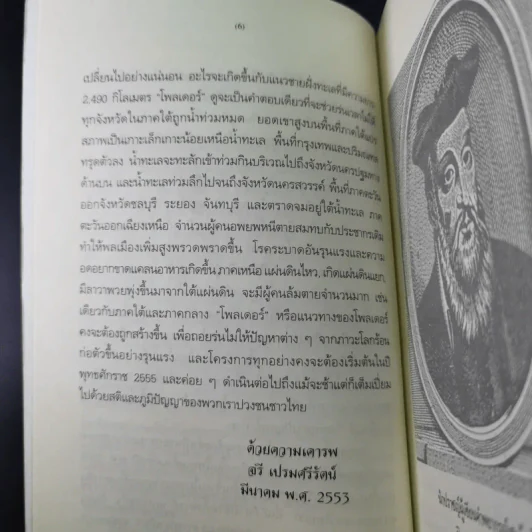 (6)
เปลี่ยนไปอย่างแน่นอน อะไรจะเกิดขึ้นกับแนวชายฝั่งทะเลที่มีความยาว
2,490 กิโลเมตร "โพลเดอร์" ดูจะเป็นคำตอบเดียวที่จะช่วย
ทุกจังหวัดในภาคใต้ถูกน้ำท่วมหมด ยอดเขาสูงบนพื้นที่ภาคใต้
สภาพเป็นเกาะเล็กเกาะน้อยเหนือน้ำทะเล พื้นที่กรุงเทพและปริมณฑล
ทรุดตัวลง น้ำทะเลจะทะลักเข้าท่วมกินบริเวณไปถึงจังหวัดนครปฐมทาง
ด้านบน และน้ำทะเลท่วมลึกไปจนถึงจังหวัดนครสวรรค์ พื้นที่ภาคตะวัน
ออกจังหวัดชลบุรี ระยอง จันทบุรี และตราดจมอยู่ใต้น้ำทะเล ภาค
ตะวันออกเฉียงเหนือ จำนวนผู้คนอพยพหนีตายสมทบกับประชากรเดิม
ทำให้พลเมืองเพิ่มสูงพรวดพราดขึ้น โรคระบาดอันรุนแรงและความ
อดอยากขาดแคลนอาหารเกิดขึ้น ภาคเหนือ แผ่นดินไหว, เกิดแผ่นดินแยก,
มีลาวาพวยพุ่งขึ้นมาจากใต้แผ่นดิน จะมีผู้คนล้มตายจำนวนมาก เช่น
เดียวกับภาคใต้และภาคกลาง "โพลเดอร์" หรือแนวทางของโพลเดอร์
คงจะต้องถูกสร้างขึ้น เพื่อถอยร่นไม่ให้ปัญหาต่าง ๆ จากภาวะโลกร้อน
ก่อตัวขึ้นอย่างรุนแรง และโครงการทุกอย่างคงจะต้องเริ่มต้นในปี
พุทธศักราช 2555 และค่อย ๆ ดำเนินต่อไปถึงแม้จะช้าแต่ก็เต็มเปี่ยม
ไปด้วยสติและภูมิปัญญาของพวกเราปวงชนชาวไทย
ด้วยความเคารพ
สรี เปรมศรีรัตน์
มีนาคม พ.ศ. 2553